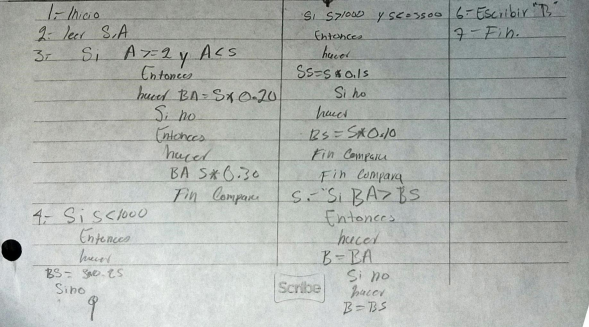 1- Inicio
2- leer S,A
3- Si A>=2 y A<5
Entonces
hacer BA=S*0.20
Si no
Entonces
hacer
BA S*0.30
Fin Compara
4- Si S<1000
Entonces
hacer
BS= S*0.25
Sino
Si S>1000 y S<=3500
Entonces
hacer
SS=S*0.15
Si no
hacer
BS=S*0.10
Fin Compara
Fin Compara
5.- Si BA>BS
Entonces
hacer
B=BA
Si no
hacer
B=BS
6- Escribir "B"
7- Fin.
Scribe